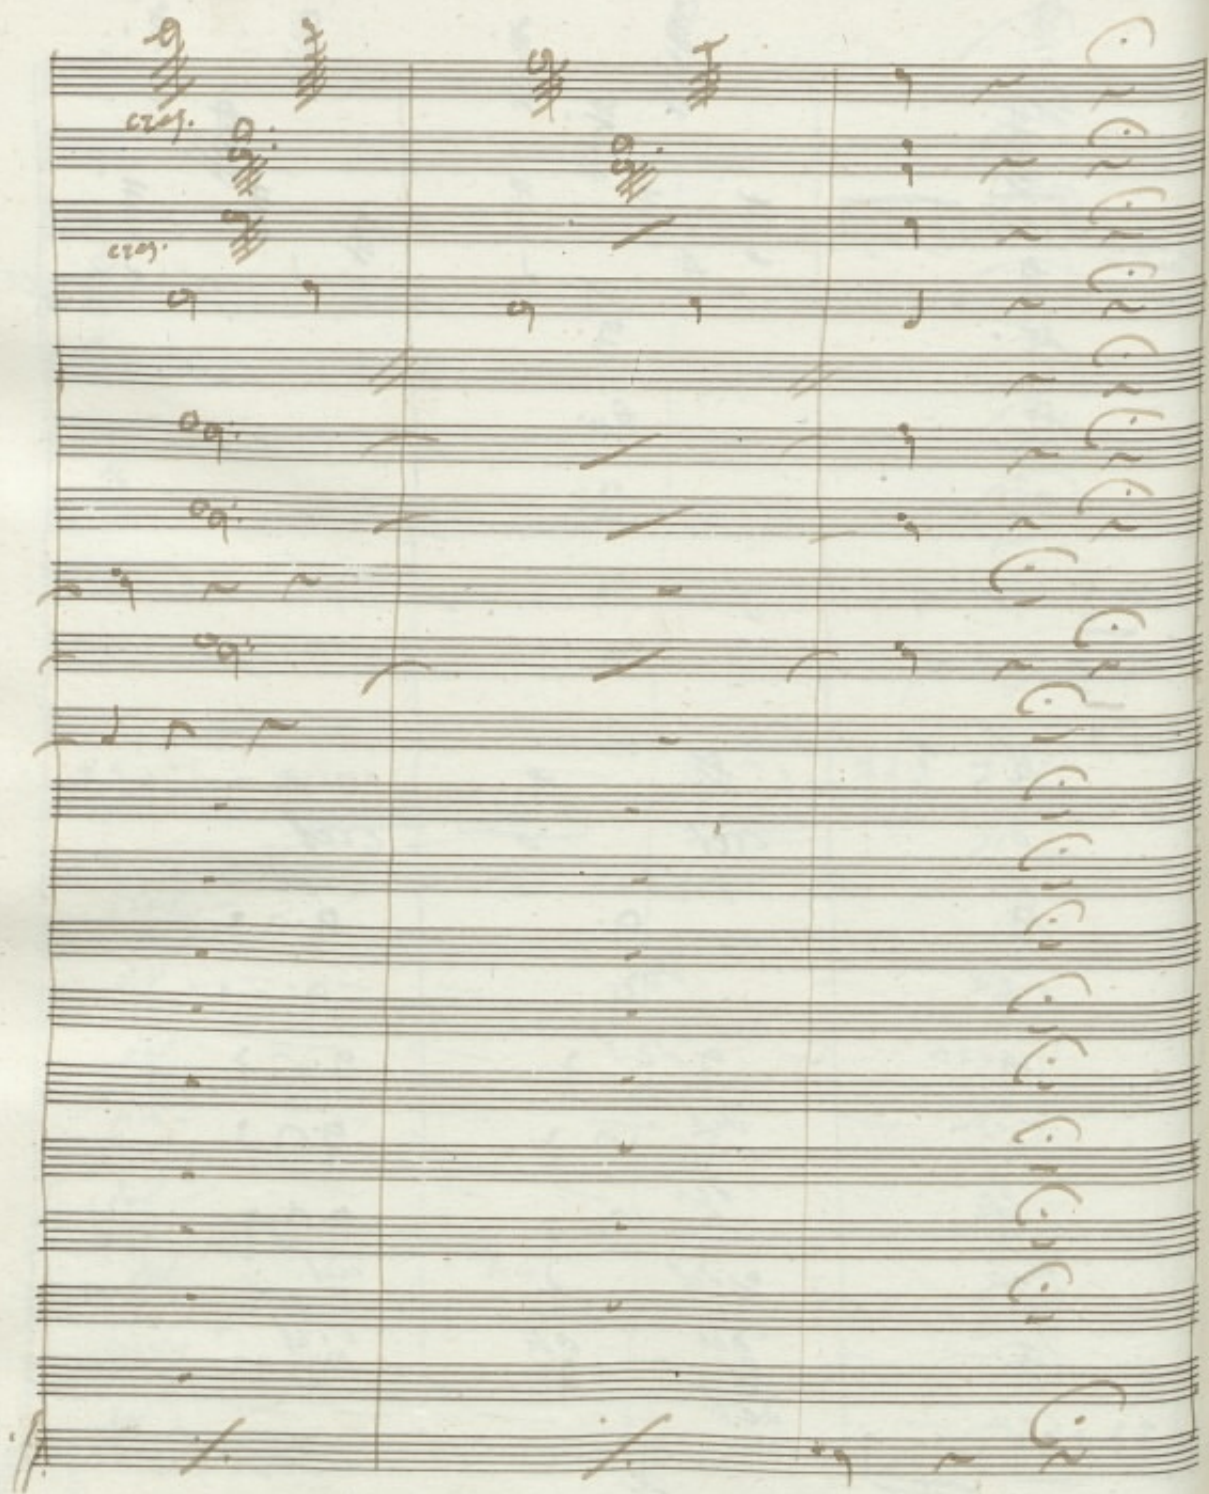 cres.
cres.